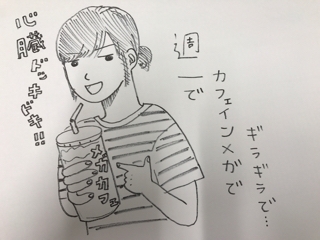 ギラギラで…
カフェインメガで
週一で
メガカフェ
心臓ドッキドキ!!